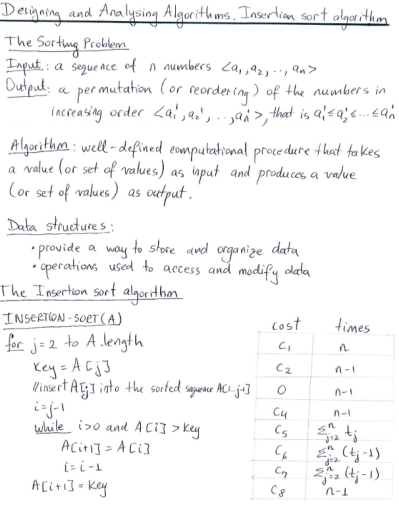 Designing and Analysing Algorithms. Insertion sort algorithm
The Sorting Problem
Input: a sequence of n numbers <a₁,a₂,..,aₙ>
Output: a permutation (or reordering) of the numbers in
increasing order <a₁',a₂',..,aₙ'>, that is a₁'≤a₂'≤...≤aₙ'
Algorithm: well-defined computational procedure that takes
a value (or set of values) as input and produces a value
(or set of values) as output.
Data structures:
• provide a way to store and organize data
• operations used to access and modify data
The Insertion sort algorithm
INSERTION-SORT(A) cost times
for j=2 to A.length C₁ n
Key = A[j] C₂ n-1
//insert A[j] into the sorted sequence A[1..j-1] 0 n-1
i=j-1 C₄ n-1
while i>0 and A[i] > Key C₅ Σⁿⱼ₌₂ tⱼ
A[i+1] = A[i] C₆ Σⁿⱼ₌₂ (tⱼ-1)
i = i-1 C₇ Σⁿⱼ₌₂ (tⱼ-1)
A[i+1] = Key C₈ n-1